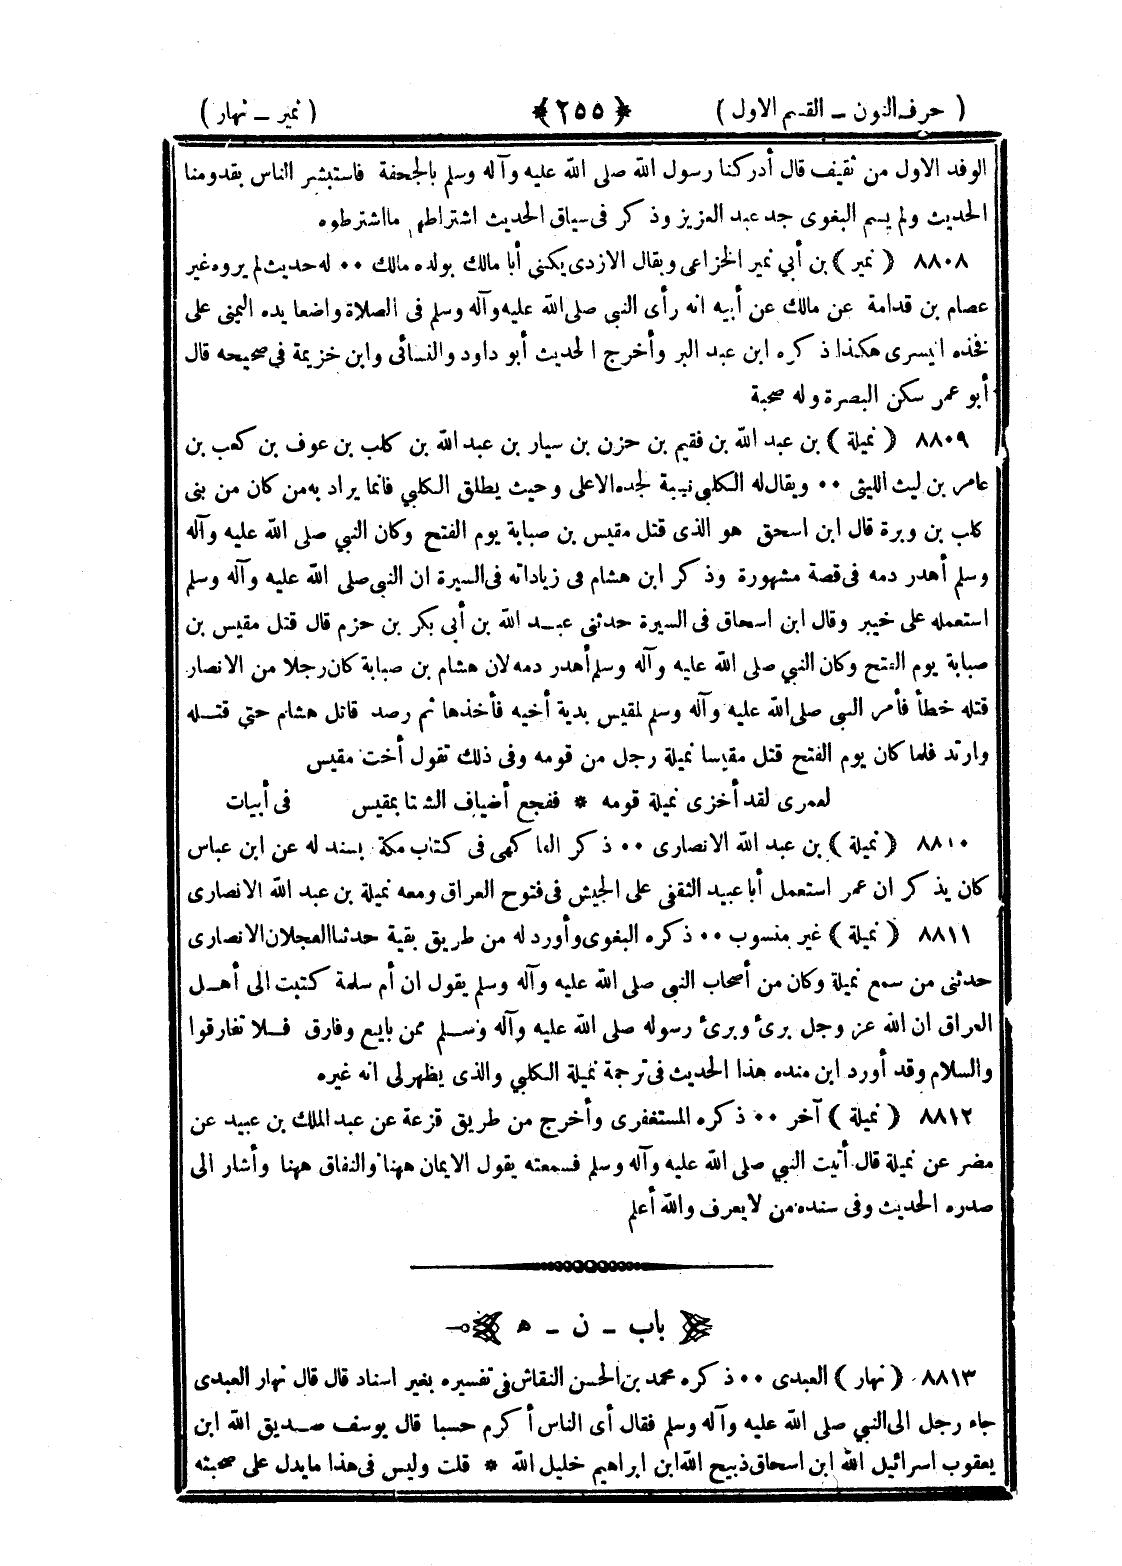 ( حرف النون ـ القسم الاول ) ﴿ ٢٥٥ ﴾ ( نمير ـ نهار )
الوفد الاول من ثقيف قال أدركنا رسول الله صلى الله عليه وآله وسلم بالجحفة فاستبشر الناس بقدومنا
الحديث ولم يسم البغوى جد عبد العزيز وذكر فى سياق الحديث اشتراطهم مااشترطوه
٨٨٠٨ ( نمير ) بن أبي نمير الخزاعى ويقال الازدى يكنى أبا مالك بولده مالك ٠٠ له حديث لم يروه غير
عصام بن قدامة عن مالك عن أبيه انه رأى النبي صلى الله عليه وآله وسلم فى الصلاة واضعا يده اليمنى على
فخذه اليسرى هكذا ذكره ابن عبد البر وأخرج الحديث أبو داود والنسائى وابن خزيمة في صحيحه قال
أبو عمر سكن البصرة وله صحبة
٨٨٠٩ ( نميلة ) بن عبد الله بن فقيم بن حزن بن سيار بن عبد الله بن كلب بن عوف بن كعب بن
عامر بن ليث الليثى ٠٠ ويقال له الكلبي نسبة لجده الاعلى وحيث يطلق الكلبي فانما يراد به من كان من بنى
كلب بن وبرة قال ابن اسحق هو الذى قتل مقيس بن صبابة يوم الفتح وكان النبي صلى الله عليه وآله
وسلم أهدر دمه فى قصة مشهورة وذكر ابن هشام فى زياداته فى السيرة ان النبي صلى الله عليه وآله وسلم
استعمله على خيبر وقال ابن اسحاق فى السيرة حدثنى عبد الله بن أبي بكر بن حزم قال قتل مقيس بن
صبابة يوم الفتح وكان النبي صلى الله عليه وآله وسلم أهدر دمه لان هشام بن صبابة كان رجلا من الانصار
قتله خطأ فأمر النبى صلى الله عليه وآله وسلم لمقيس بدية أخيه فأخذها ثم رصد قاتل هشام حتي قتله
وارتد فلما كان يوم الفتح قتل مقيسا نميلة رجل من قومه وفى ذلك تقول أخت مقيس
لعمرى لقد أخزى نميلة قومه * ففجع أضياف الشتا بمقيس فى أبيات
٨٨١٠ ( نميلة ) بن عبد الله الانصارى ٠٠ ذكر الفاكهى فى كتاب مكة بسند له عن ابن عباس
كان يذكر ان عمر استعمل أبا عبيد الثقفى على الجيش فى فتوح العراق ومعه نميلة بن عبد الله الانصارى
٨٨١١ ( نميلة ) غير منسوب ٠٠ ذكره البغوى وأورد له من طريق بقية حدثنا العجلان الانصارى
حدثنى من سمع نميلة وكان من أصحاب النبى صلى الله عليه وآله وسلم يقول ان أم سلمة كتبت الى أهل
العراق ان الله عز وجل برئ وبرئ رسوله صلى الله عليه وآله وسلم ممن بايع وفارق فلا تفارقوا
والسلام وقد أورد ابن منده هذا الحديث فى ترجمة نميلة الكلبي والذى يظهر لى انه غيره
٨٨١٢ ( نميلة ) آخر ٠٠ ذكره المستغفرى وأخرج من طريق قزعة عن عبد الملك بن عبيد عن
مضر عن نميلة قال أتيت النبي صلى الله عليه وآله وسلم فسمعته يقول الايمان ههنا والنفاق ههنا وأشار الى
صدره الحديث وفى سنده من لايعرف والله أعلم
باب ـ ن ـ ه
٨٨١٣ ( نهار ) العبدى ٠٠ ذكره محمد بن الحسن النقاش فى تفسيره بغير اسناد قال قال نهار العبدى
جاء رجل الى النبي صلى الله عليه وآله وسلم فقال أى الناس أكرم حسبا قال يوسف صديق الله ابن
يعقوب اسرائيل الله ابن اسحاق ذبيح الله ابن ابراهيم خليل الله * قلت وليس فى هذا مايدل على صحبته